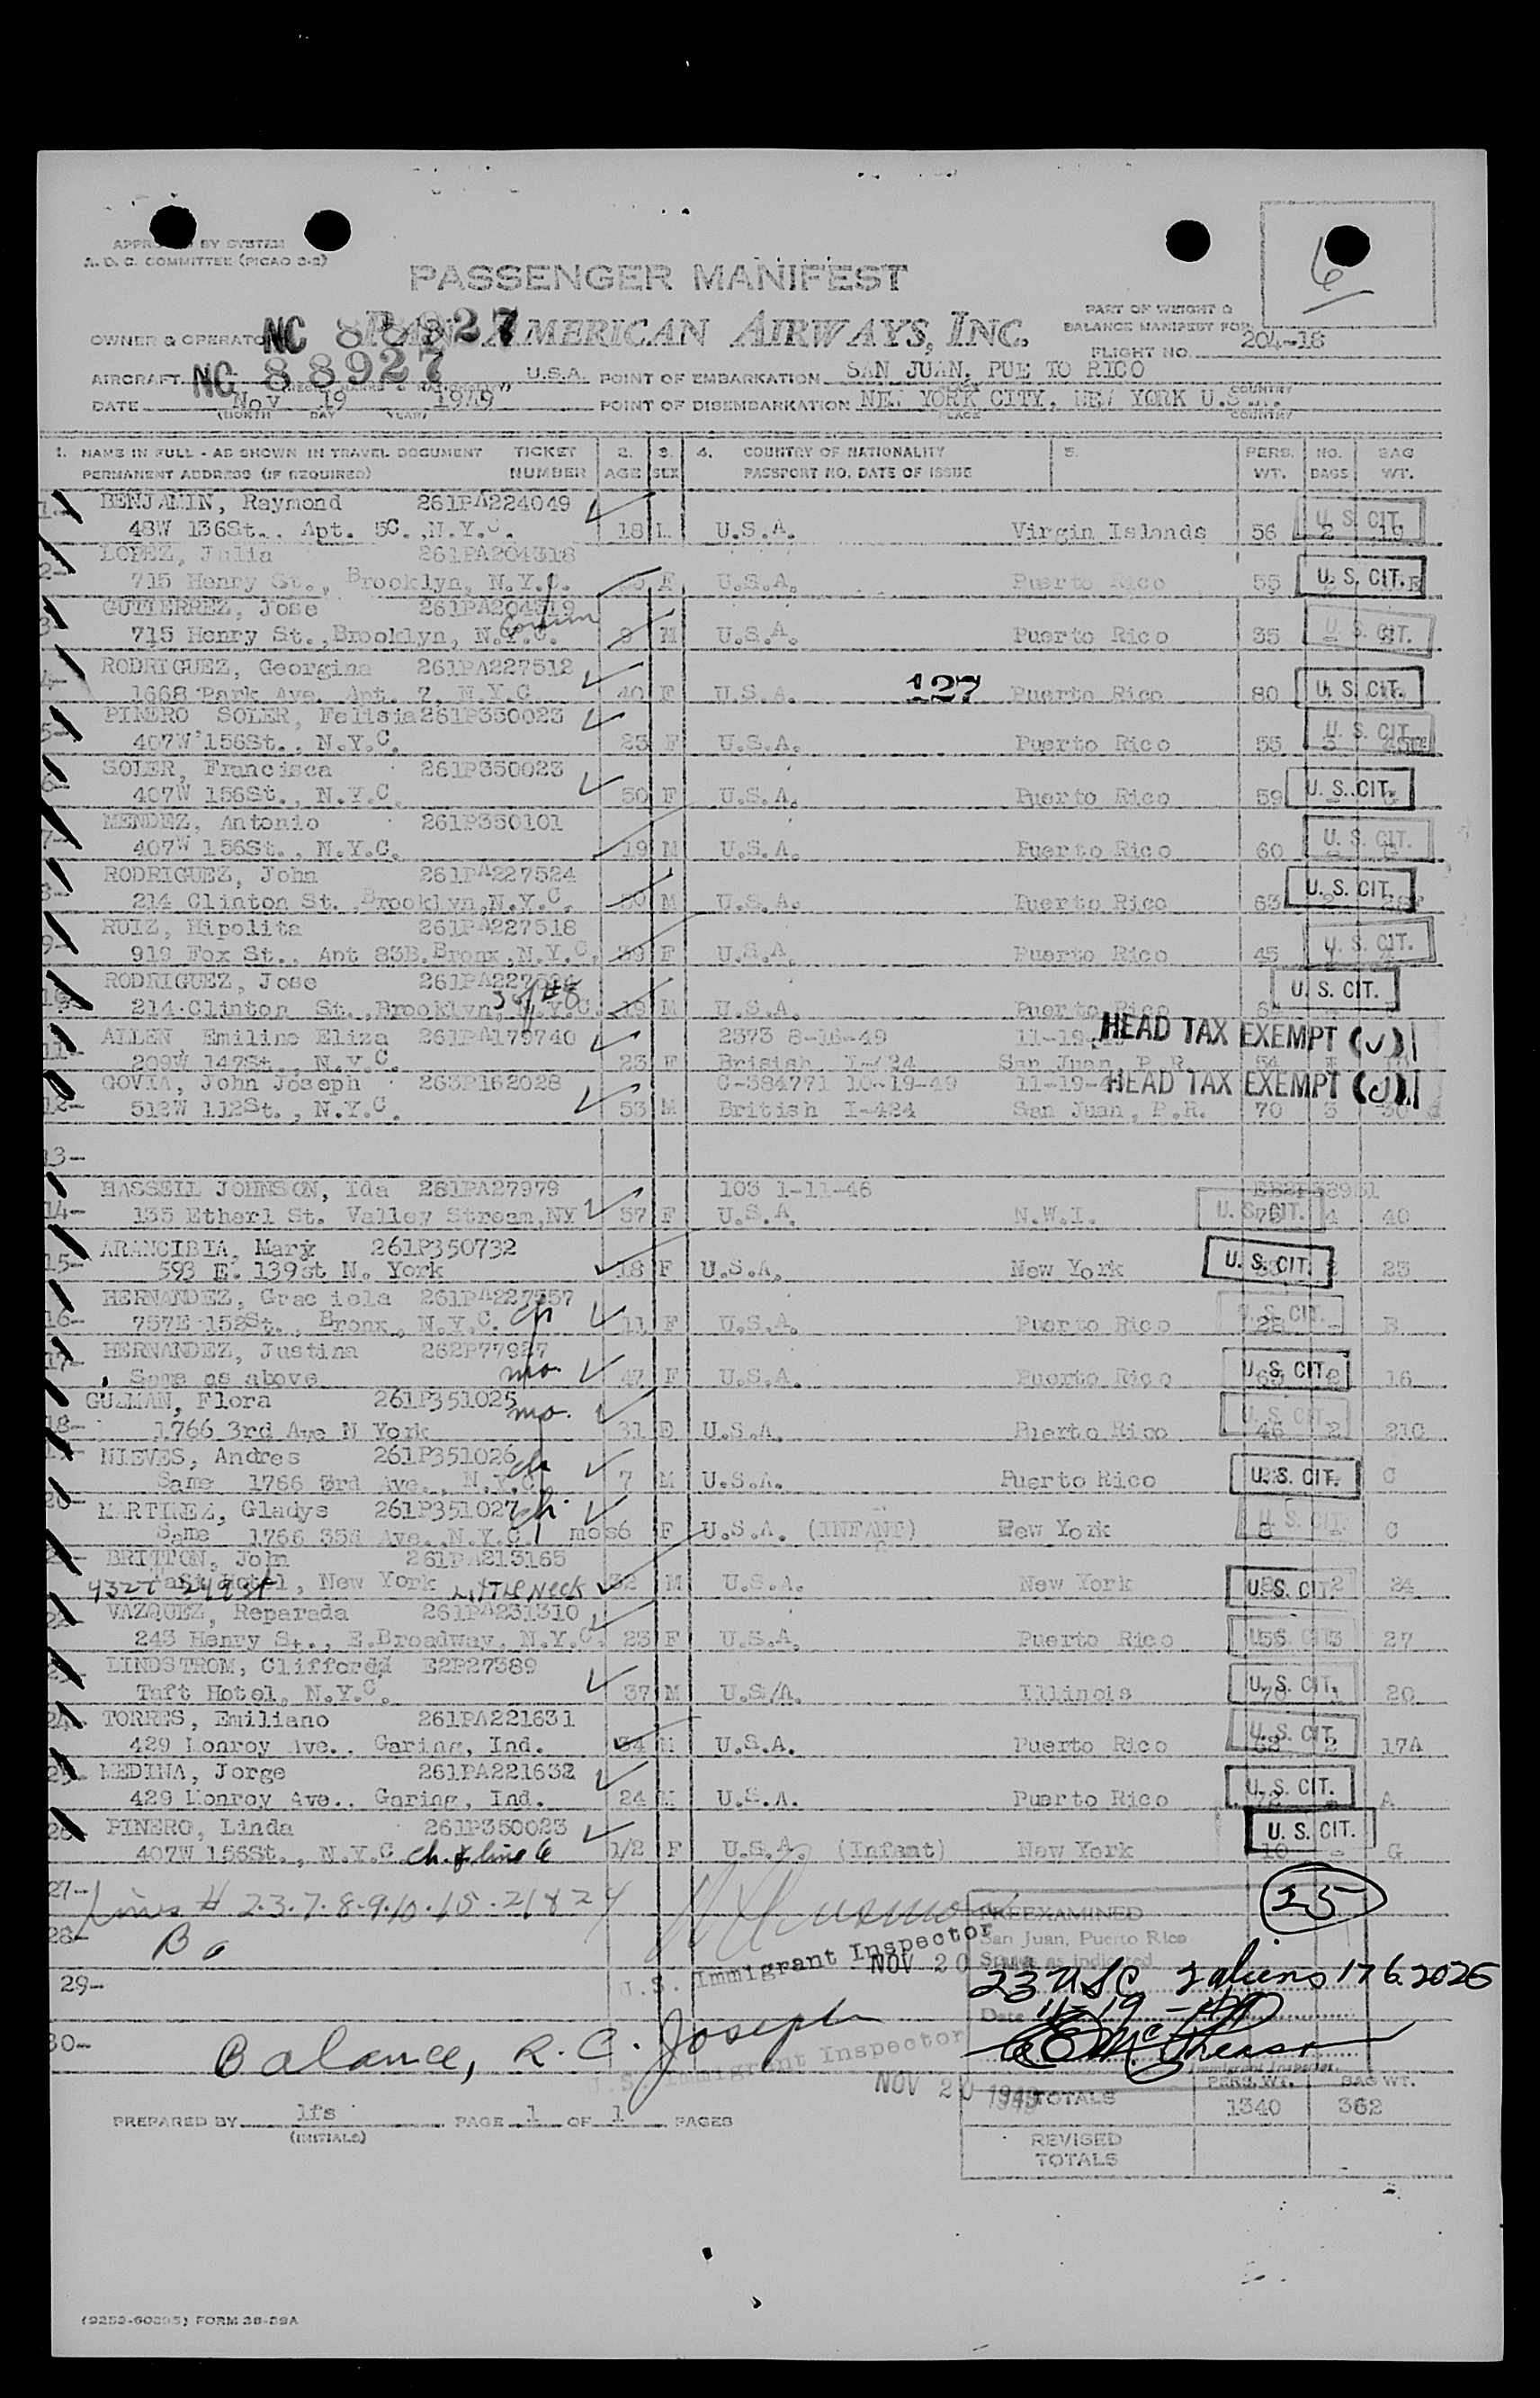 6
APPROVED BY SYSTEM
A. D. C. COMMITTEE (PICAO 2-2)
PASSENGER MANIFEST
PART OF WEIGHT &
BALANCE MANIFEST FOR
OWNER & OPERATOR NC 88927 PAN AMERICAN AIRWAYS, INC.
FLIGHT NO. 204-18
AIRCRAFT NC 88927 U.S.A. POINT OF EMBARKATION SAN JUAN, PUE TO RICO
COUNTRY
DATE Nov 19 1949 POINT OF DISEMBARKATION NEW YORK CITY, NEW YORK U.S.A.
(MONTH DAY YEAR) PLACE COUNTRY
1. NAME IN FULL - AS SHOWN IN TRAVEL DOCUMENT TICKET 2. 3. 4. COUNTRY OF NATIONALITY 5. PERS. NO. BAG
PERMANENT ADDRESS (IF REQUIRED) NUMBER AGE SEX PASSPORT NO. DATE OF ISSUE WT. BAGS WT.
1- BENJAMIN, Raymond 261PA224049
48W 136St., Apt. 5C.,N.Y.C. 18 U.S.A. Virgin Islands 56 2 19 U.S. CIT.
2- LOPEZ, Julia 261PA204318
715 Henry St., Brooklyn, N.Y.C. F U.S.A. Puerto Rico 55 U. S. CIT.
3- GUTIERREZ, Jose 261PA204319
715 Henry St.,Brooklyn, N.Y.C. 9 M U.S.A. Puerto Rico 35 U. S. CIT.
4- RODRIGUEZ, Georgina 261PA227512
1668 Park Ave. Apt. 7, N.Y.C 40 F U.S.A. 127 Puerto Rico 80 U. S. CIT.
5- PINERO SOLER, Felisia 261P350023
407W 156St., N.Y.C. 23 F U.S.A. Puerto Rico 55 3 U. S. CIT.
6- SOLER, Francisca 261P350023
407W 156St., N.Y.C. 50 F U.S.A. Puerto Rico 59 U. S. CIT.
7- MENDEZ, Antonio 261P350101
407W 156St., N.Y.C. 19 M U.S.A. Puerto Rico 60 U. S. CIT.
8- RODRIGUEZ, John 261PA227524
214 Clinton St.,Brooklyn,N.Y.C. 50 M U.S.A. Puerto Rico 63 U. S. CIT.
9- RUIZ, Hipolita 261PA227518
919 Fox St., Apt 83B.Bronx,N.Y.C. 39 F U.S.A. Puerto Rico 45 U. S. CIT.
10- RODRIGUEZ, Jose
214 Clinton St.,Brooklyn, N.Y.C. 19 M U.S.A. Puerto Rico U. S. CIT.
11- ALLEN Emiline Eliza 261PA179740 2373 8-16-49 11-19- HEAD TAX EXEMPT (✓)
209W 147St., N.Y.C. 23 F Britsish I-424 San Juan, P.R. 54
GOVIA, John Joseph 263P162028 C-384771 10-19-49 11-19-4 HEAD TAX EXEMPT (✓)
12- 512W 112St., N.Y.C. 53 M British I-424 San Juan, P.R. 70 3 30
13-
HASSELL JOHNSON, Ida 261PA27979 103 1-11-46
14- 135 Etherl St. Valley Stream,NY 57 F U.S.A. N.W.I. U. S. CIT. 4 40
ARANCIBIA, Mary 261P350732
15- 593 E. 139st N. York 18 F U.S.A. New York U. S. CIT. 2 23
HERNANDEZ, Grac iela 261PA227557
16- 757E 152St., Bronx, N.Y.C. ch 11 F U.S.A. Puerto Rico 28 U. S. CIT. - B
17- HERNANDEZ, Justina 262P77927
Same as above mo. 47 F U.S.A. Puerto Rico U. S. CIT. 2 16
GUZMAN, Flora 261P351025 mo.
18- 1766 3rd Ave N York 31 F U.S.A. Puerto Rico 46 U. S. CIT. 2 21C
19- NIEVES, Andres 261P351026 ch
Same 1766 3rd Ave., N.Y.C. 7 M U.S.A. Puerto Rico U. S. CIT. C
20- MARTINEZ, Gladys 261P351027 ch.
Same 1766 3rd Ave.,N.Y.C. mos6 F U.S.A. (INFANT) New York 8 U. S. CIT. C
BRITTON, John 261PA213165
Taft Hotel, New York Little Neck 32 M U.S.A. New York U. S. CIT. 2 24
VAZQUEZ, Reparada 261PA231310
243 Henry St., E.Broadway, N.Y.C. 23 F U.S.A. Puerto Rico 56 U. S. CIT. 3 27
LINDSTROM, Clifford E2P27389
Taft Hotel, N.Y.C. 37 M U.S/A. Illinois U. S. CIT. 20
24- TORRES, Emiliano 261PA221631
429 Monroy Ave., Garing, Ind. 34 M U.S.A. Puerto Rico 62 U. S. CIT. 2 17A
25- MEDINA, Jorge 261PA221632
429 Monroy Ave., Garing, Ind. 24 M U.S.A. Puerto Rico 72 U. S. CIT. A
26- PINERO, Linda 261P350023
407W 156St., N.Y.C. ch. of line 6 1/2 F U.S.A. (Infant) New York 10 U. S. CIT. - G
27- Lines # 2.3.7.8.9.10.15.21 & 24
25
PREEXAMINED
28-
San Juan, Puerto Rico
U.S. Immigrant Inspector NOV 20
Status as indicated
29- 23 USC 2 aliens 176.2026
Date 11-19-49
30- Balance, R. C. Joseph
U. S. Immigrant Inspector
Immigrant Inspector
NOV 20 1949
PERS. WT. BAG WT.
TOTALS 1340 362
PREPARED BY lfs PAGE 1 OF 1 PAGES
(INITIALS)
REVISED
TOTALS
FORM 38-39A